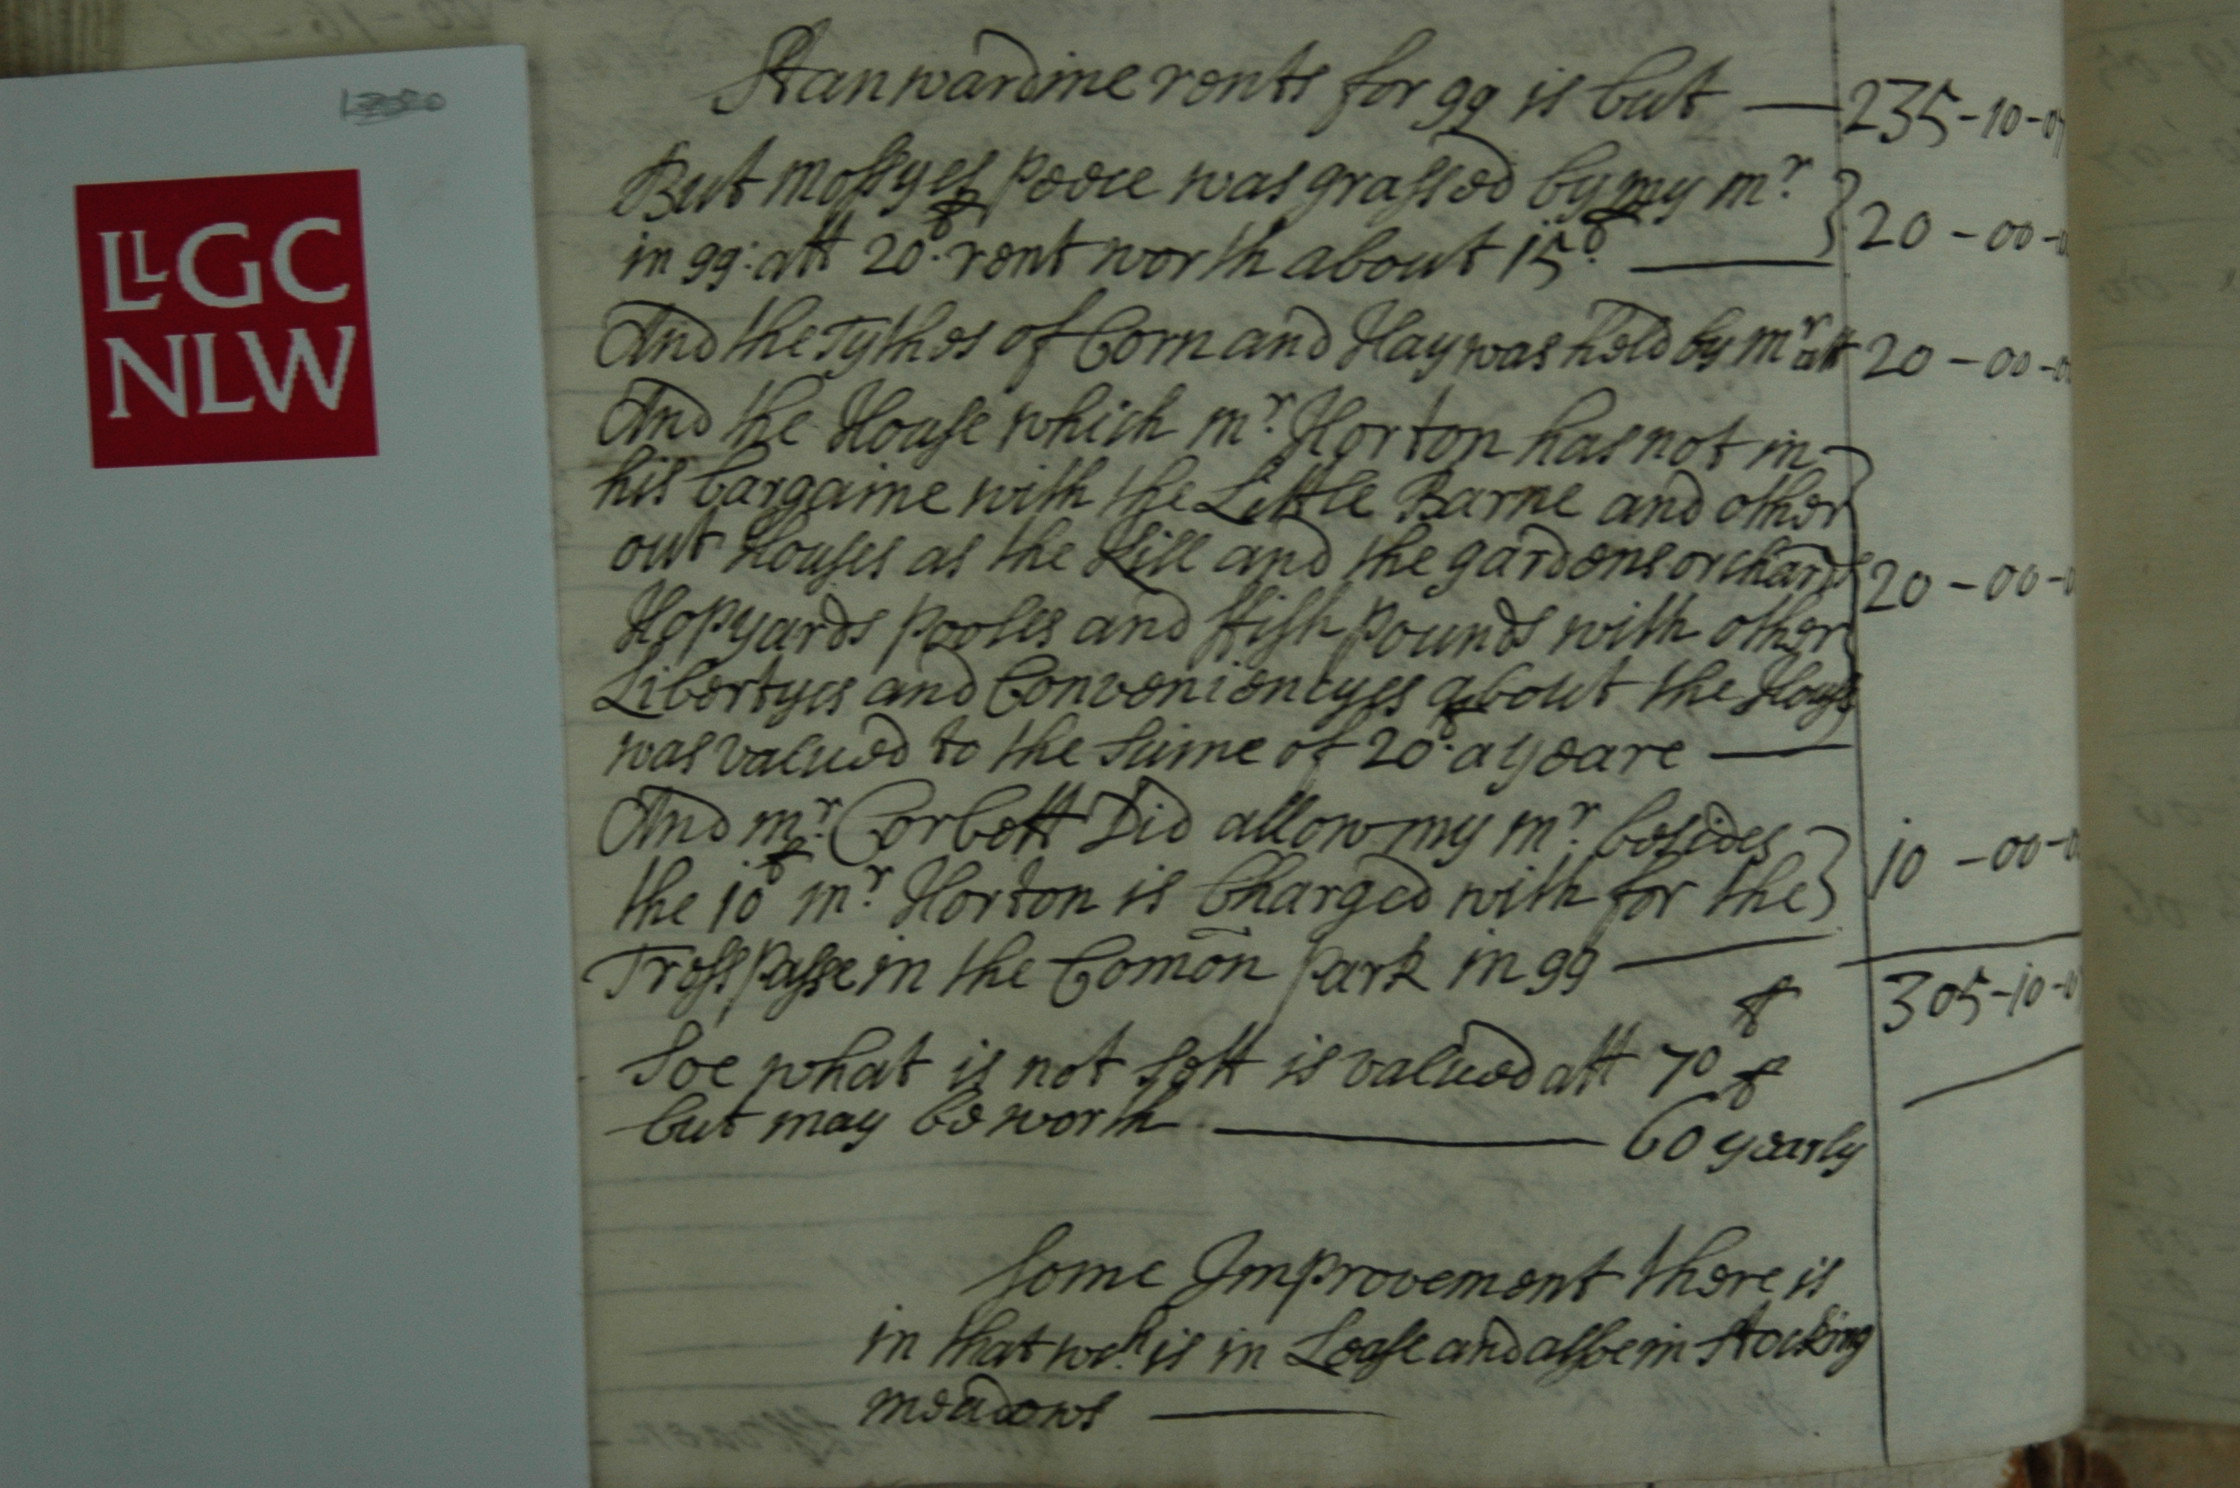 LLGC
NLW
Stanwardine rents for 99 is but — 235-10-07
But Mossyes peece was grassed by my mr
in 99: att 20£ rent worth about 15£ — 20-00-0
And the Tythes of Corn and Hay was held by mr att 20-00-0
And the House which mr Horton has not in
his bargaine with the Little Barne and other
out Houses as the Kill and the gardens orchards
Hopyards pooles and ffish pounds with other 20-00-0
Libertyes and Conveniencyes about the House
was valued to the sume of 20£ a yeare —
And mr Corbett Did allow my mr besides
the 10£ mr Horton is Charged with for the 10-00-0
Tresspasse in the Comon park in 99 —
305-10-0
Soe what is not sett is valued att 70£
but may be worth — 60£ yearly
Some Improvement there is
in that wch is in Lease and allsoe in Stocking
meadows —